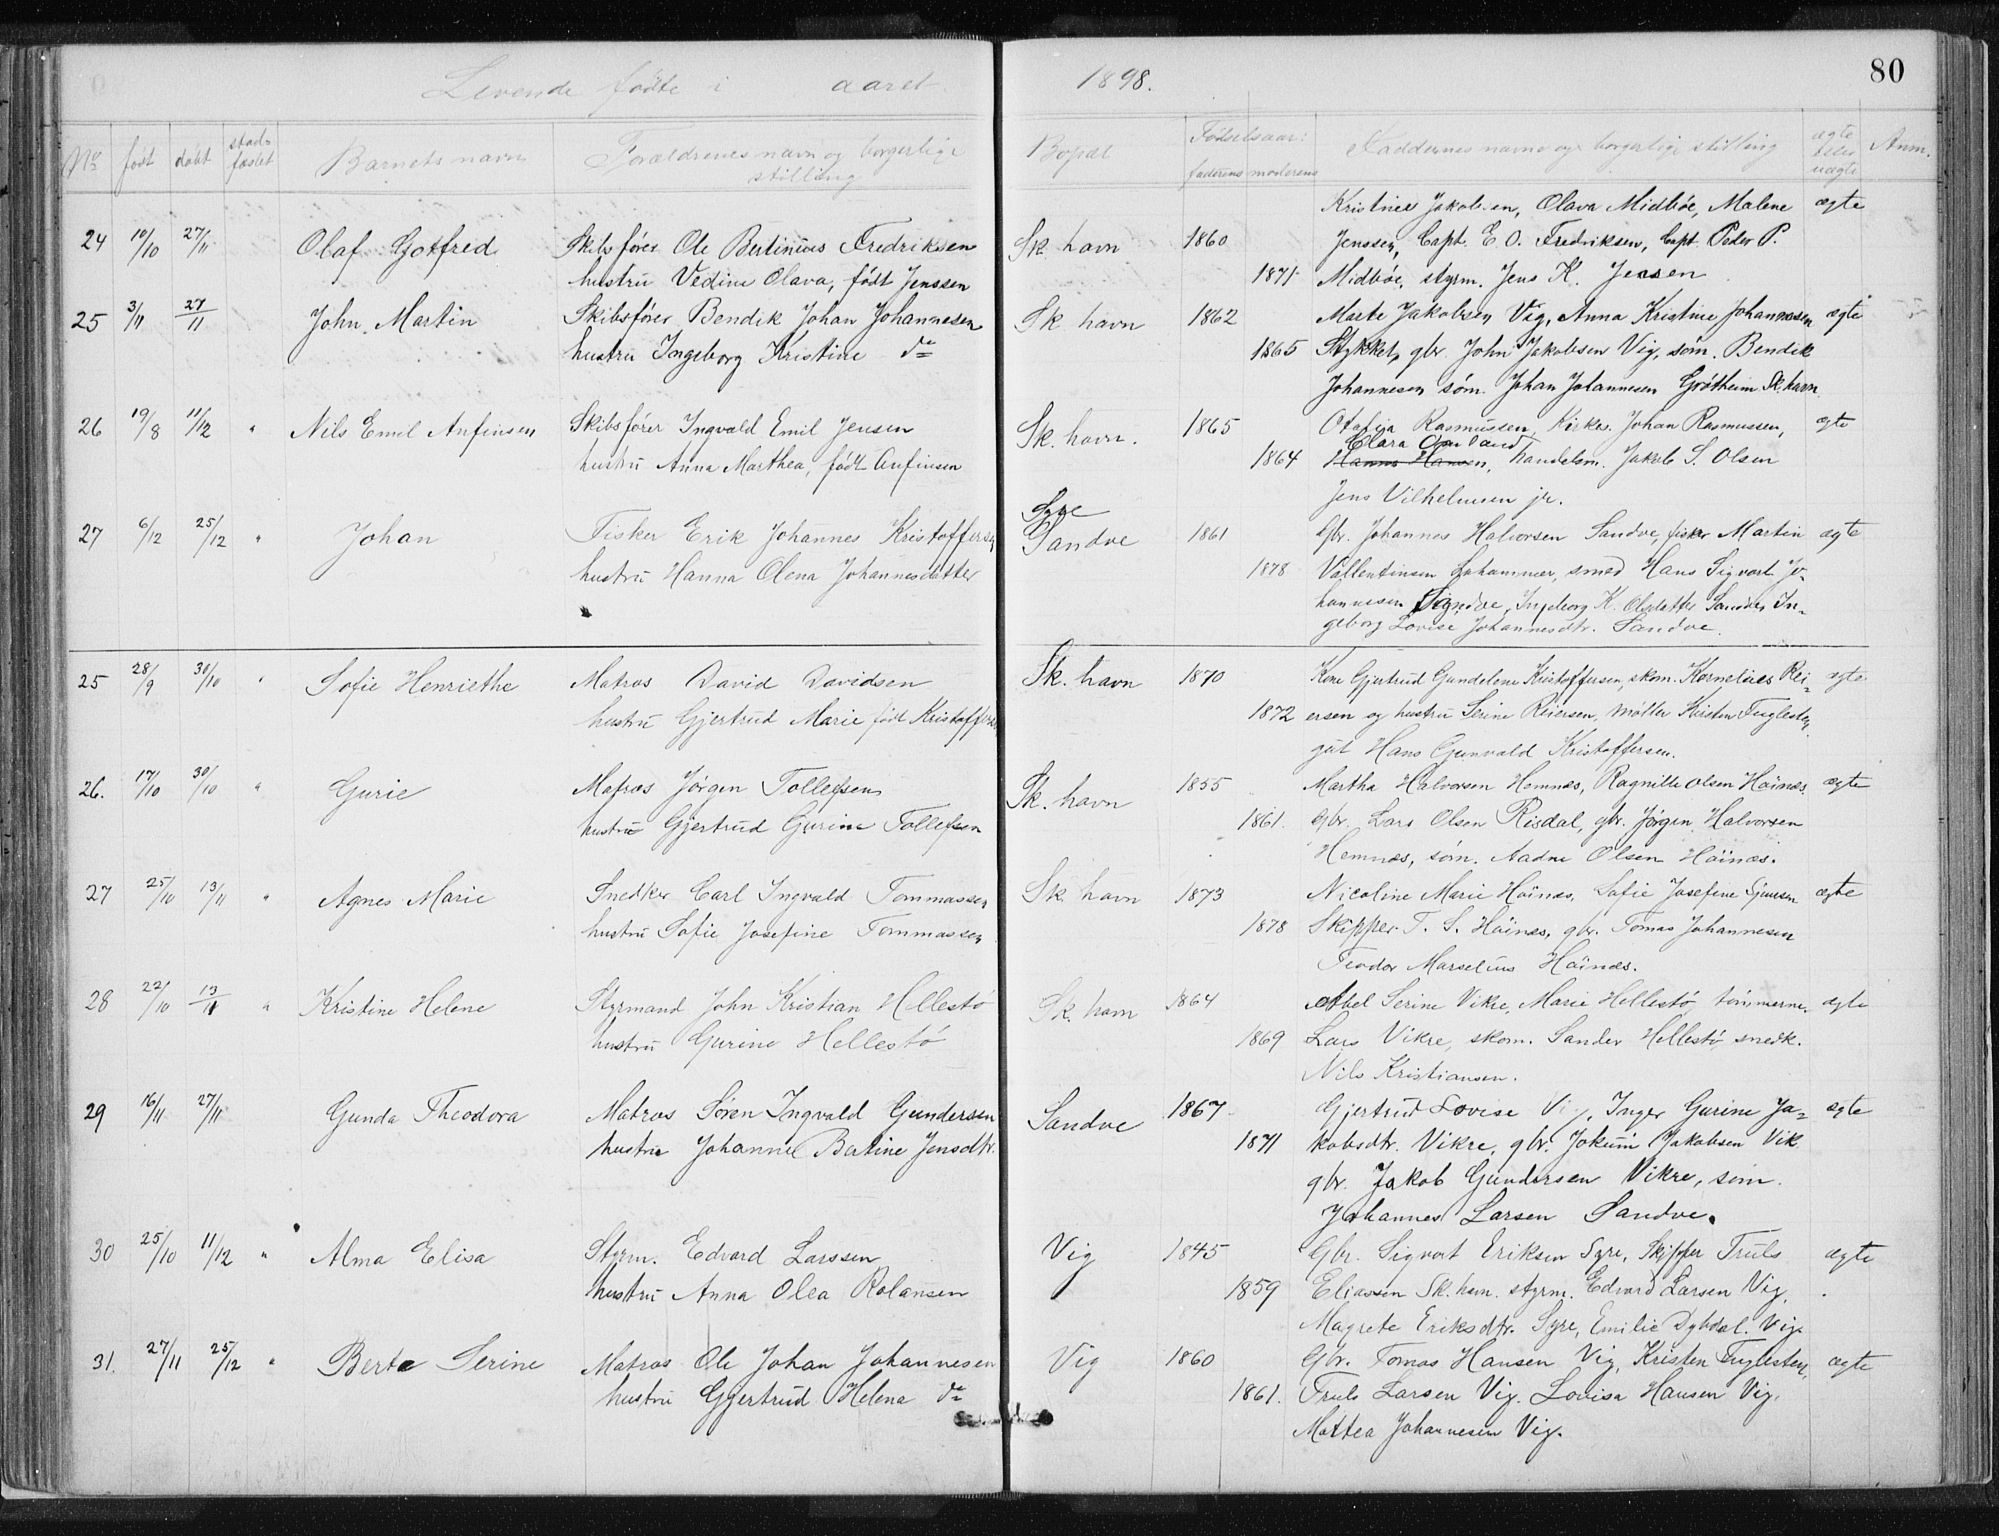 Levende fødte i aaret 1898. 80
No født døbt stadfæstet Barnets navn Forældrenes navn og borgerlige stilling Bopæl Fødselsaar: faderens moderens Faddernes navne og borgerlige stilling ægte eller uægte Anm.
Jakobsen, Olava Midbøe, Malene ægte
24 10/10 27/11 Olaf Gotfred Skibsfører Ole Bertinius Fredriksen Sk. havn 1860 Jenssen, Capt. E. O. Fredriksen, Capt. Peder P.
hustru Vedine Olava, født Jenssen 1871 Midbøe, styrm. Jens K. Jensen
25 3/11 27/11 John Martin Skibsfører Bendik Johan Johannesen Sk. havn 1862 Marte Jakobsen Vig, Anna Kristine Johannesen ægte
hustru Ingeborg Kristine do 1865 Stykket, gbr. John Jakobsen Vig, søm. Bendik
Johannesen søm. Johan Johannesen Grøtheim Sk. havn
26 19/8 11/12 " Nils Emil Anfinsen Skibsfører Ingvald Emil Jensen Sk. havn. 1865 Rasmussen, Kirkes. Johan Rasmussen, ægte
Clara
hustru Anna Marthea, født Anfinsen 1864 handelsm. Jakob S. Olsen
Jens Vilhelmsen jr.
Syre
27 6/12 25/12 " Johan Fisker Erik Johannes Kristoffersen Sandve 1861 Gbr. Johannes Halvorsen Sandve, fisker Martin ægte
hustru Hanna Olena Johannesdatter 1878 Vallentinsen Lahammer, smed Hans Sigvart Jo-
hannesen Sandve, Ingeborg K. Olsdatter Sandve, In-
geborg Lovise Johannesdtr. Sandve.
25 28/9 30/10 " Sofie Henriethe Matros David Davidsen Sk. havn 1870 Kone Gjertrud Gundelene Kristoffersen, skom. Kornelius Rei- ægte
hustru Gjertrud Marie født Kristoffersen 1872 ersen og hustru Serine Reiersen, Møller Kristen Fuglesten,
gut Hans Gunvald Kristoffersen.
26. 17/10 30/10 " Gurie Matros Jørgen Tollefsen Sk. havn 1855 Martha Halvorsen Hemnæs, Ragnille Olsen Høinæs ægte
hustru Gjertrud Gurine Tollefsen 1861. Gbr. Lars Olsen Risdal, gbr. Jørgen Halvorsen
Hemnæs, søm. Aadne Olsen Høinæs.
27 25/10 13/11 " Agnes Marie Snedker Carl Ingvald Tommassen Sk. havn 1873 Nicoline Marie Høinæs, Sofie Josefine ægte
hustru Sofie Josefine Tommassen 1878 Skipper T. S. Høinæs, gbr. Tomas Johannesen
Teodor Marselius Høinæs.
28 22/10 13/11 " Kristine Helene Styrmand John Kristian Hellestø Sk. havn 1864 Abel Serine Vikre, Marie Hellestø, tømmerm. ægte
hustru Gurine Hellestø 1869 Lars Vikre, skom. Sander Hellestø, snedk.
Nils Kristiansen.
29 16/11 27/11 Gunda Theodora Matros Søren Ingvald Gundersen Sandve 1867 Gjertrud Lovise Vig, Inger Gurine Ja- ægte
hustru Johanne Bertine Jensdtr. 1871 kobsdtr. Vikre, gbr. Jokum Jakobsen Vik
gbr. Jakob Gundersen Vikre, søm.
Johannes Larsen Sandve.
30 25/10 11/12 " Alma Elisa Styrm. Edvard Larssen Vig 1845 Gbr. Sigvart Eriksen Syre, Skipper Truls ægte
hustru Anna Olea Rolansen 1859 Eliassen Sk. havn. styrm. Edvard Larsen Vig,
Magrete Eriksdtr. Syre, Emilie Dybdal. Vig.
31. 27/11 25/12 " Berte Serine Matros Ole Johan Johannesen Vig 1860 Gbr. Tomas Hansen Vig, Kristen Fuglesten, ægte
hustru Gjertrud Helena do 1861. Truls Larsen Vig. Lovisa Hansen Vig,
Mattea Johannesen Vig.